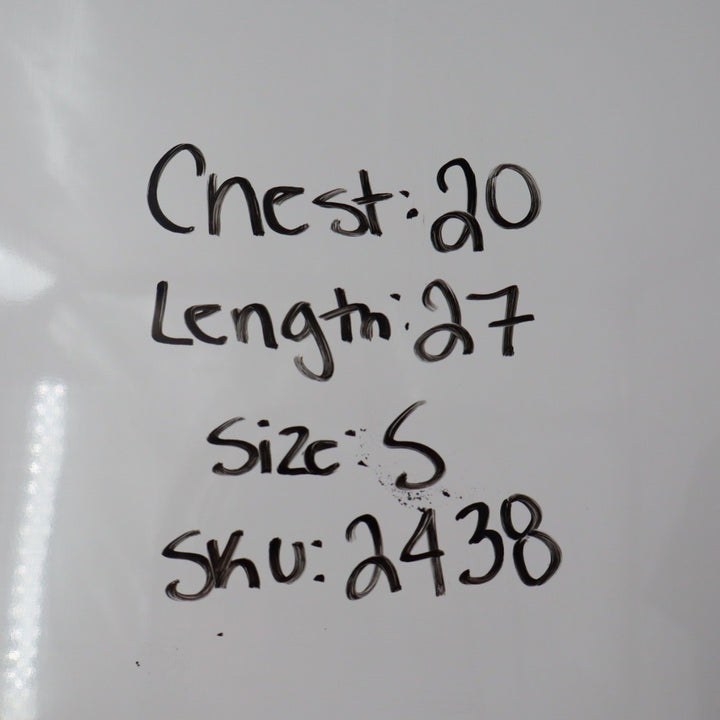 Chest: 20
Length: 27
Size: S
Sku: 2438